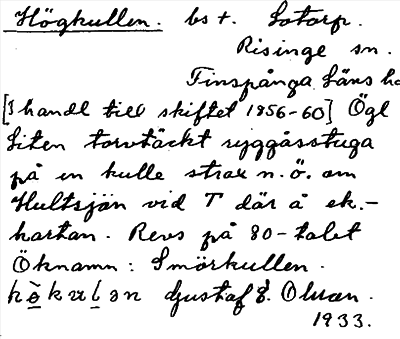 Högkullen. bs t. Sotorp.
Risinge sn.
Finspånga Läns hd
[I handl till skiftet 1856-60] Ögl
Liten torvtäckt ryggåsstuga
på en kulle strax n.ö. om
Hultsjön vid T där å ek.-
kartan. Revs på 80-talet
Öknamn: Smörkullen.
Gustaf E. Olsson.
1933.